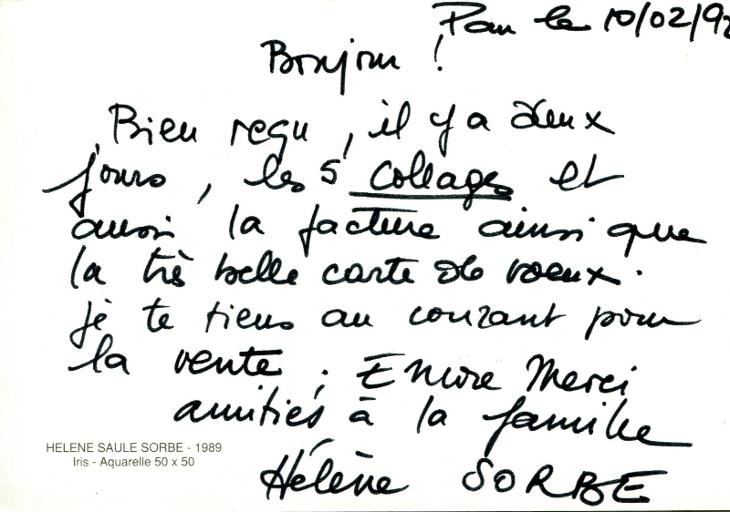 Pau le 10/02/92
Bonjour !
Bien reçu, il y a deux
jours, les 5 collages et
aussi la facture ainsi que
la très belle carte de voeux.
je te tiens au courant pour
la vente. Encore Merci
amitiés à la famille
HELENE SAULE SORBE - 1989
Iris - Aquarelle 50 x 50
Hélène SORBE